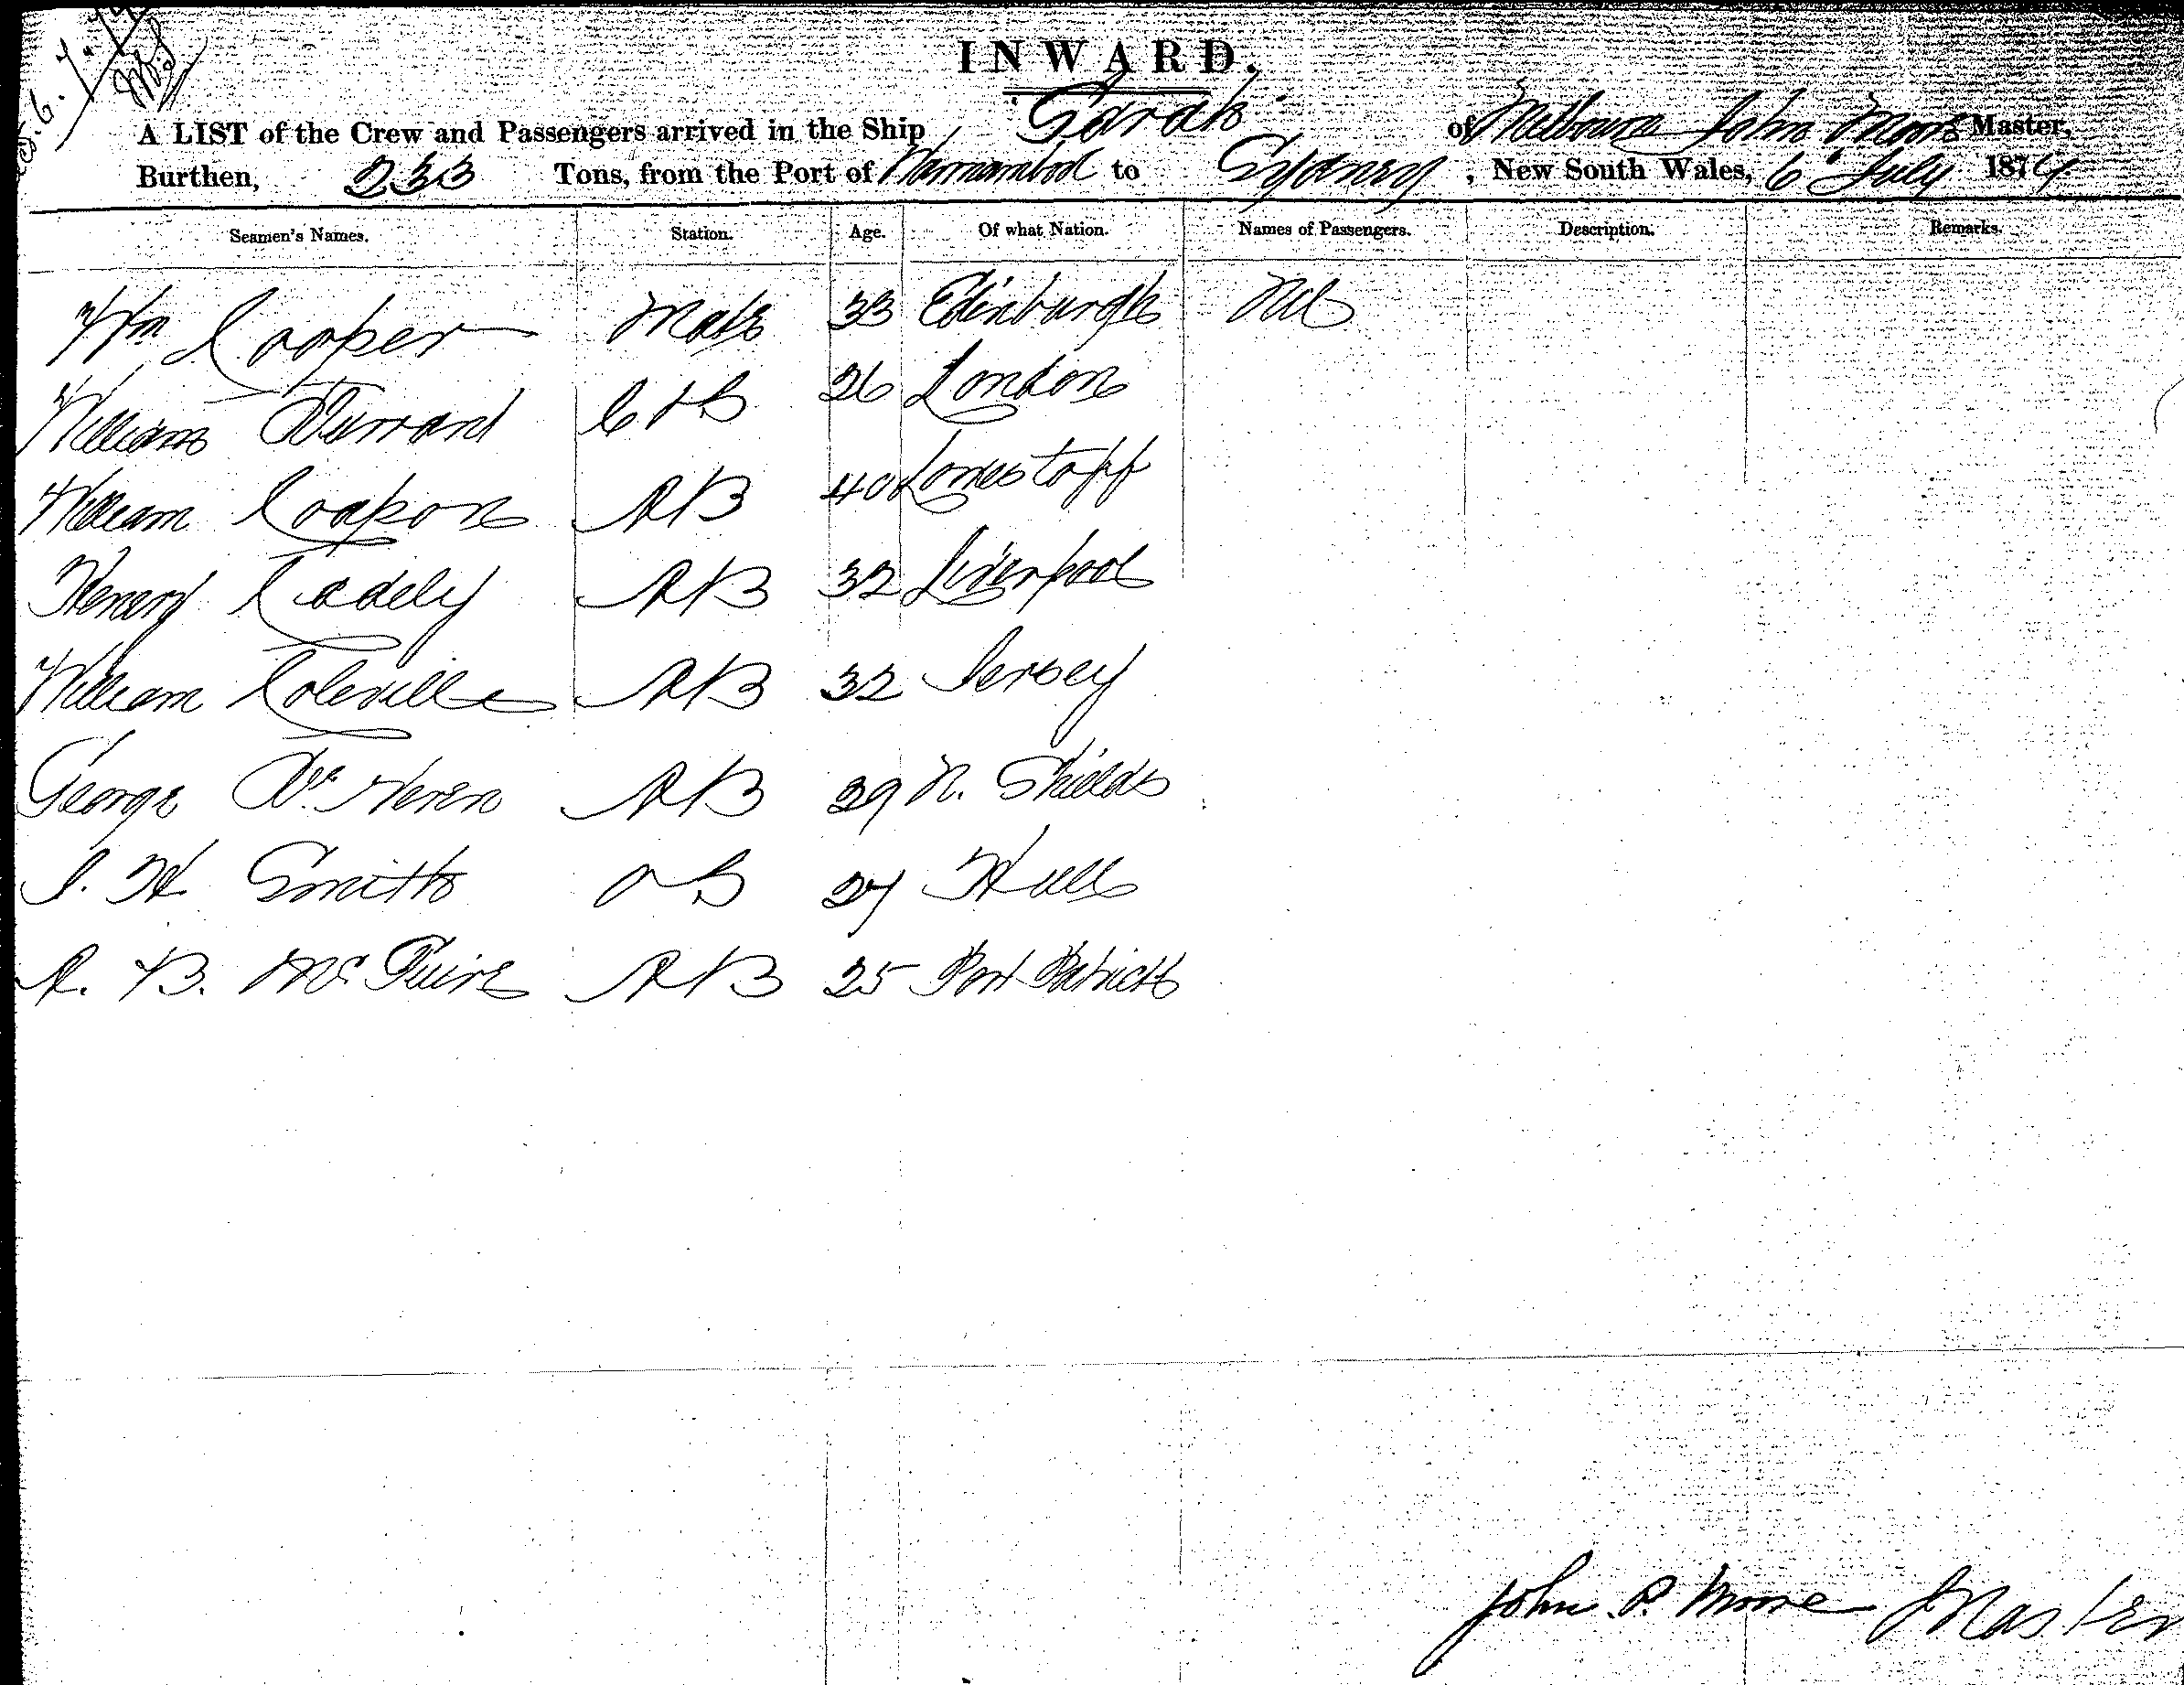 INWARD.
A LIST of the Crew and Passengers arrived in the Ship "Sarah" of Melbourne John Moore Master,
Burthen, 233 Tons, from the Port of Warrnambool to Sydney, New South Wales, 6 July 1874
Seamen's Names. Station. Age. Of what Nation. Names of Passengers. Description. Remarks.
Wm Cooper Mate 33 Edinburgh Nil
William Durrant C & S 26 London
William AB 40 Lowestoff
Henery AB 32 Liverpool
William Coleville AB 32 Jersey
George AB 29 N. Shields
J. H Smith 27 Hull
A. B. McGuire AB 25 Port Patrick
John P. Moore Master